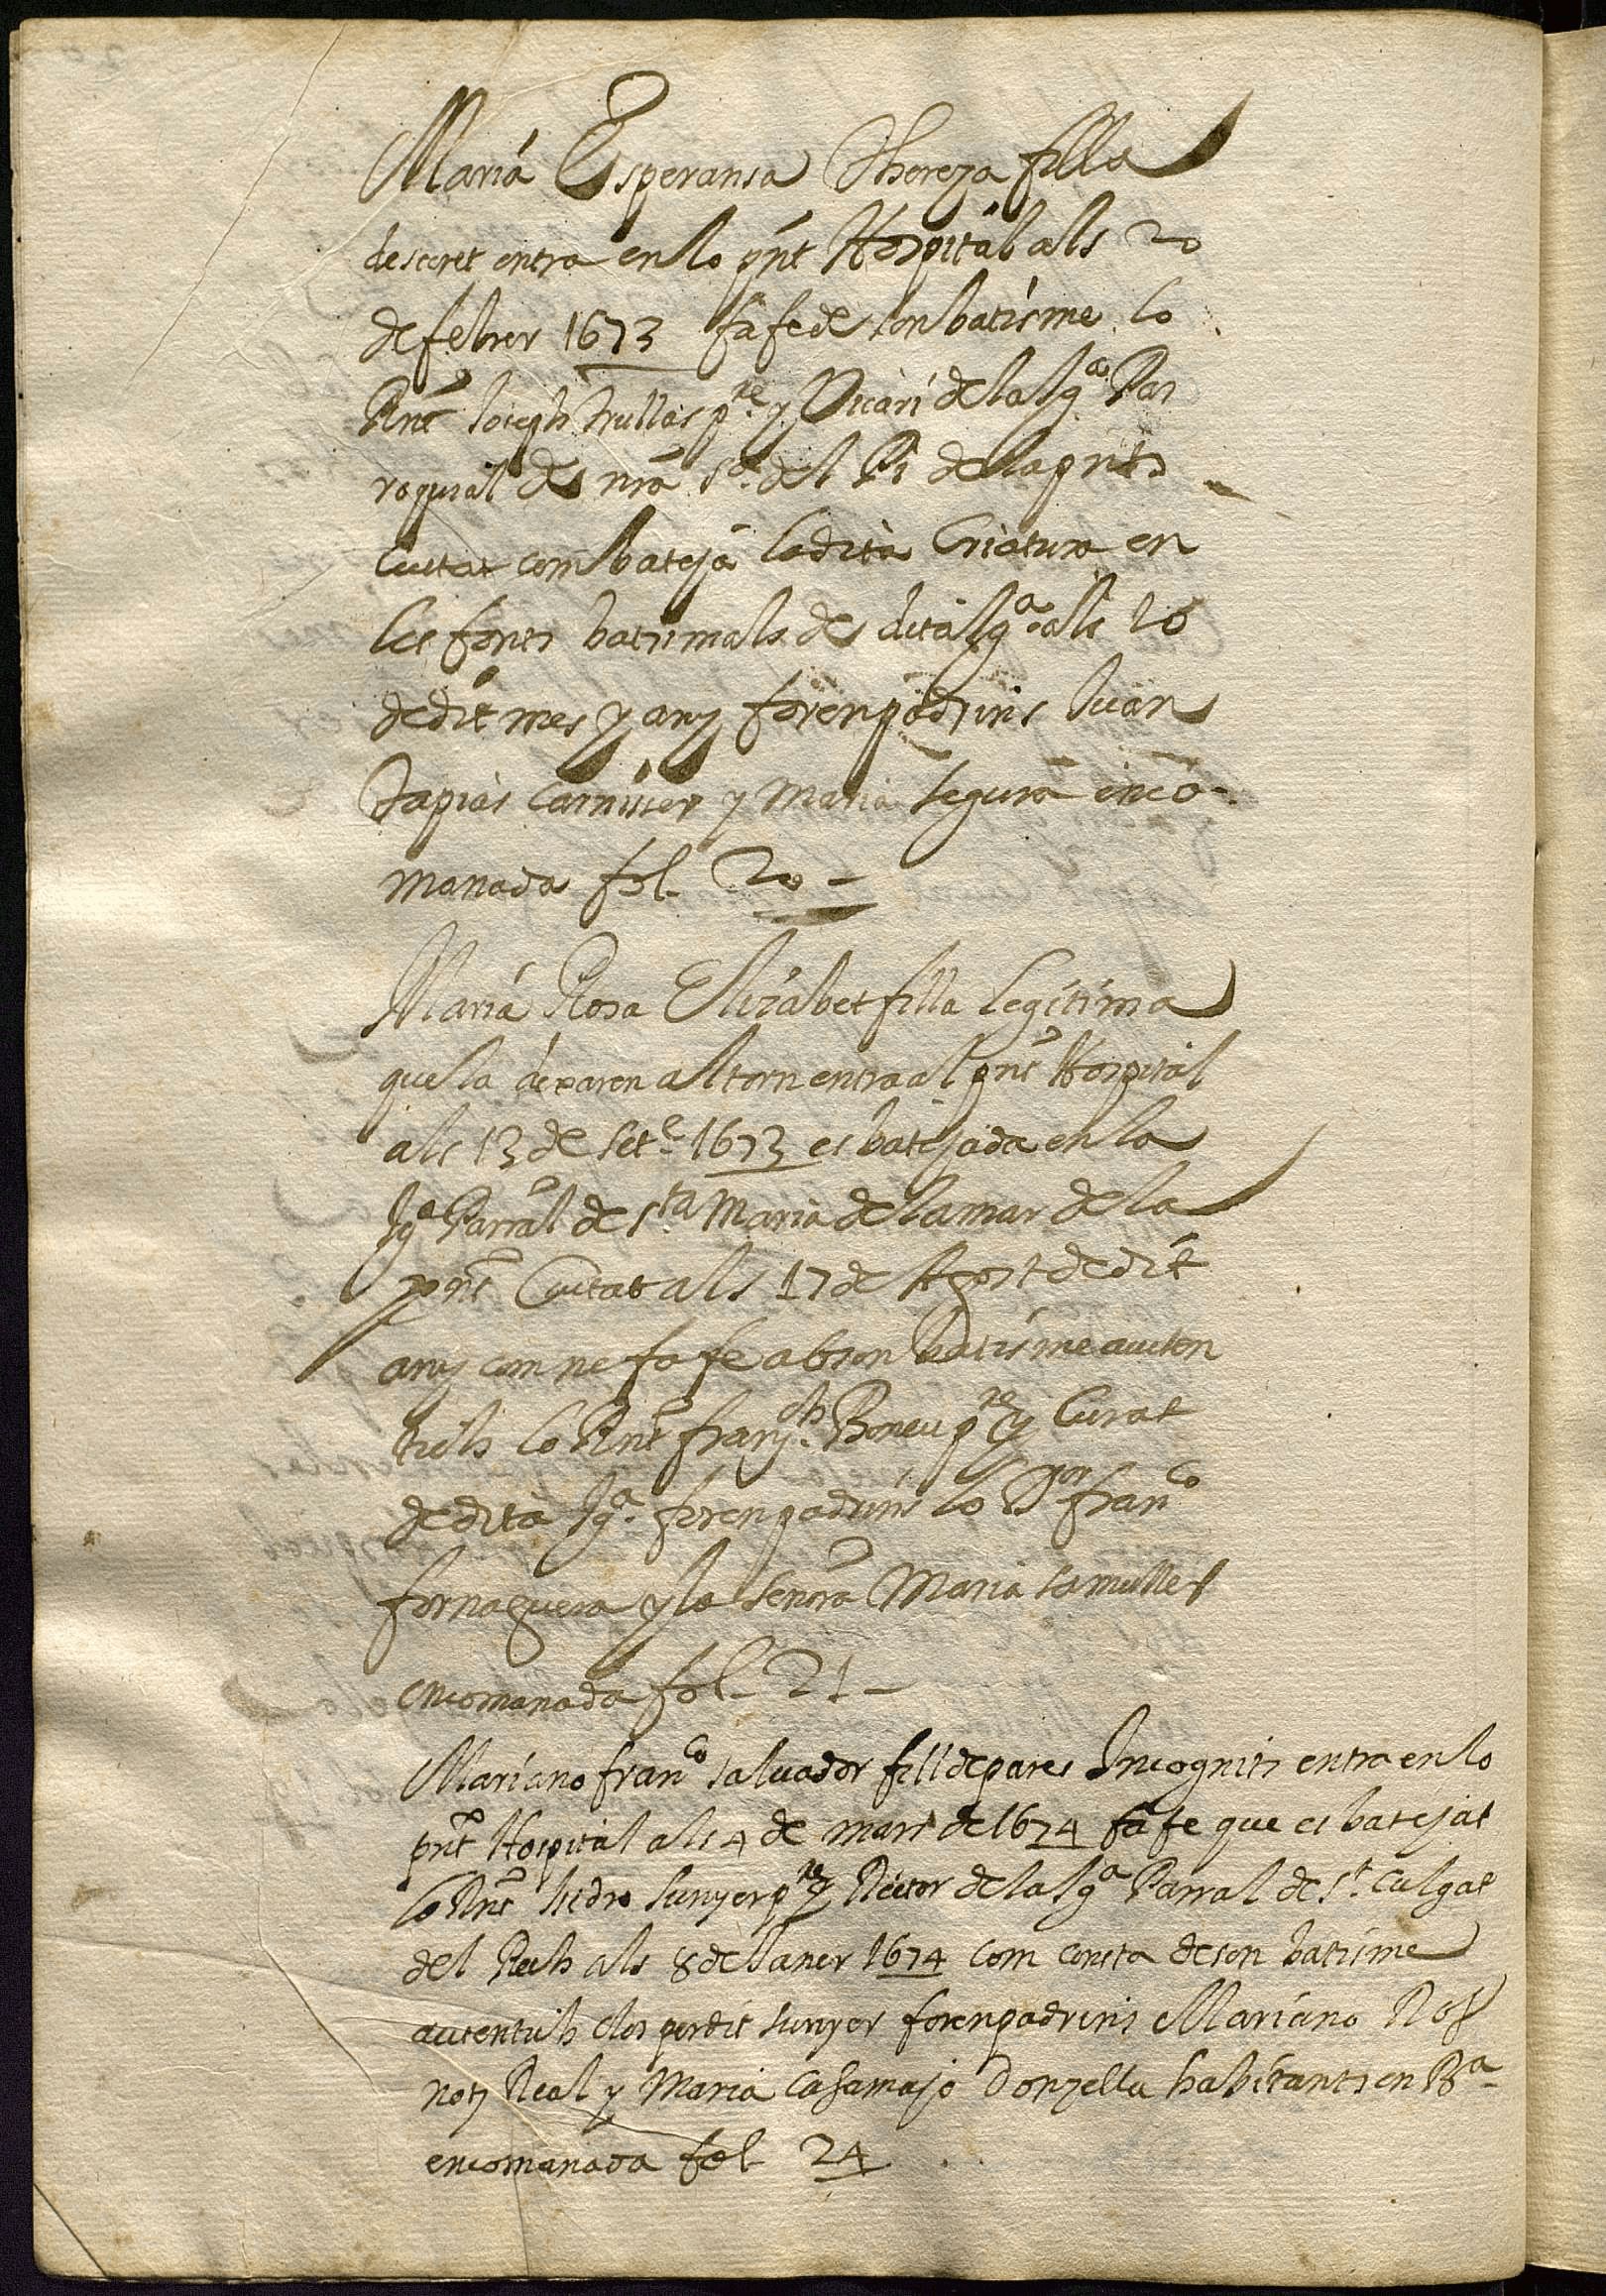 Maria Esperansa Thereza filla
de secret entra en lo pnt Hospital als 20
de febrer 1673 fa fe de son batisme lo
Rnt Joseph Trullas pre y Vicari de la Iga Par
roquial de nra Sa del Pi de la pnt
Ciutat com bateja la dita Criatura en
les fonts batismals de dita Iga als 16
de dit mes y any foren padrins Juan
Tapias Carnisser y Maria Segura enco-
manada fol. 20 -
Maria Rosa Elizabet filla legitima
que la dexaren al torn entra al pnt Hospital
als 13 de Setre 1673 es batejada en la
Iga Parral de Sta Maria de la mar de la
pnt Ciutat als 17 de Agost de dit
any com ne fa fe ab son batisme auten
tich lo Rnt Franch Boneu pre y Curat
de dita Iga foren padrins lo Sor Franco
fornaguera y la Senora Maria sa muller
encomanada fol. 21 -
Mariano Franco Salvador fill de pares Incognits entra en lo
pnt Hospital als 4 de mars de 1674 fa fe que es batejat
lo Rnt Isidro Sunyer pre y Rector de la Iga Parral de St Culgat
del Rech als 8 de Janer 1674 com consta de son batisme
autentich clos per dit Sunyer foren padrins Mariano Ros
noti Real y Maria Casamajo Donzella habitants en Ba
encomanada fol 24